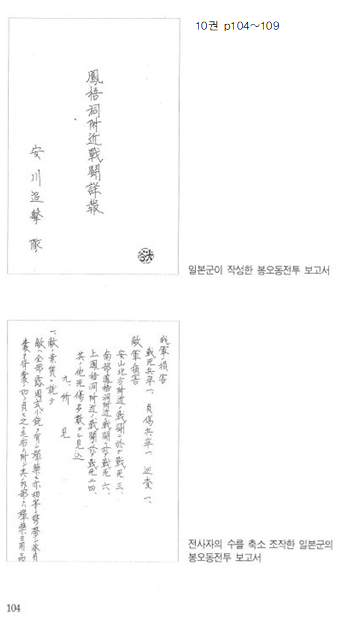 10권 p104~109
鳳梧洞附近戰鬪詳報
安川追擊隊
일본군이 작성한 봉오동전투 보고서
我軍損害
戰死兵卒一、負傷兵卒一 巡査一、
敵軍損害
安山地方附近ノ戰鬪ニ於テ戰死三、
南部鳳梧洞附近ノ戰鬪ニ於テ戰死六、
上鳳梧洞附近ノ戰鬪ニ於テ戰死二四、
其ノ他死傷多數アル見込
九、所見
一、敵ノ素質ニ就テ
전사자의 수를 축소 조작한 일본군의
봉오동전투 보고서
104